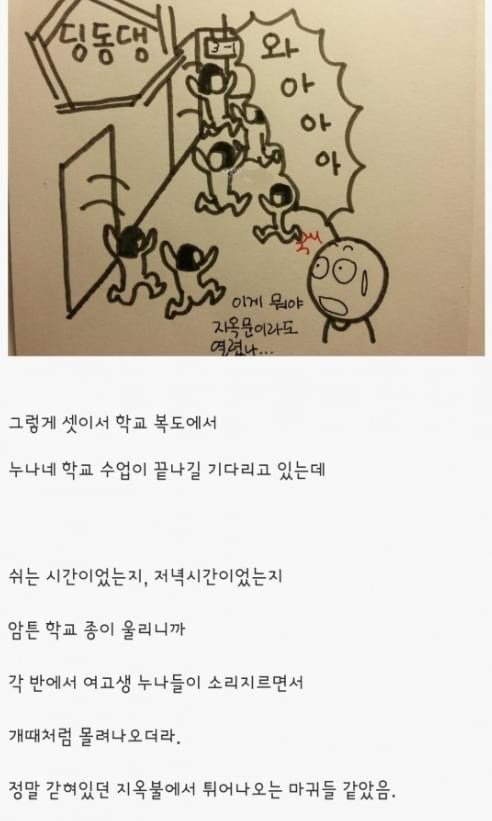 딩동댕
3-1
와
아
아
아
이게 뭐야
지옥문이라도
열렸나...
그렇게 셋이서 학교 복도에서
누나네 학교 수업이 끝나길 기다리고 있는데
쉬는 시간이었는지, 저녁시간이었는지
암튼 학교 종이 울리니까
각 반에서 여고생 누나들이 소리지르면서
개때처럼 몰려나오더라.
정말 갇혀있던 지옥불에서 튀어나오는 마귀들 같았음.